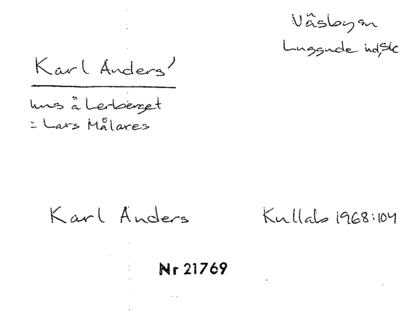 Väsbysn
Luggude hd, Sk
Karl Anders'
hus å Lerberget
= Lars Målares
Karl Anders Kullab 1968:104
Nr 21769